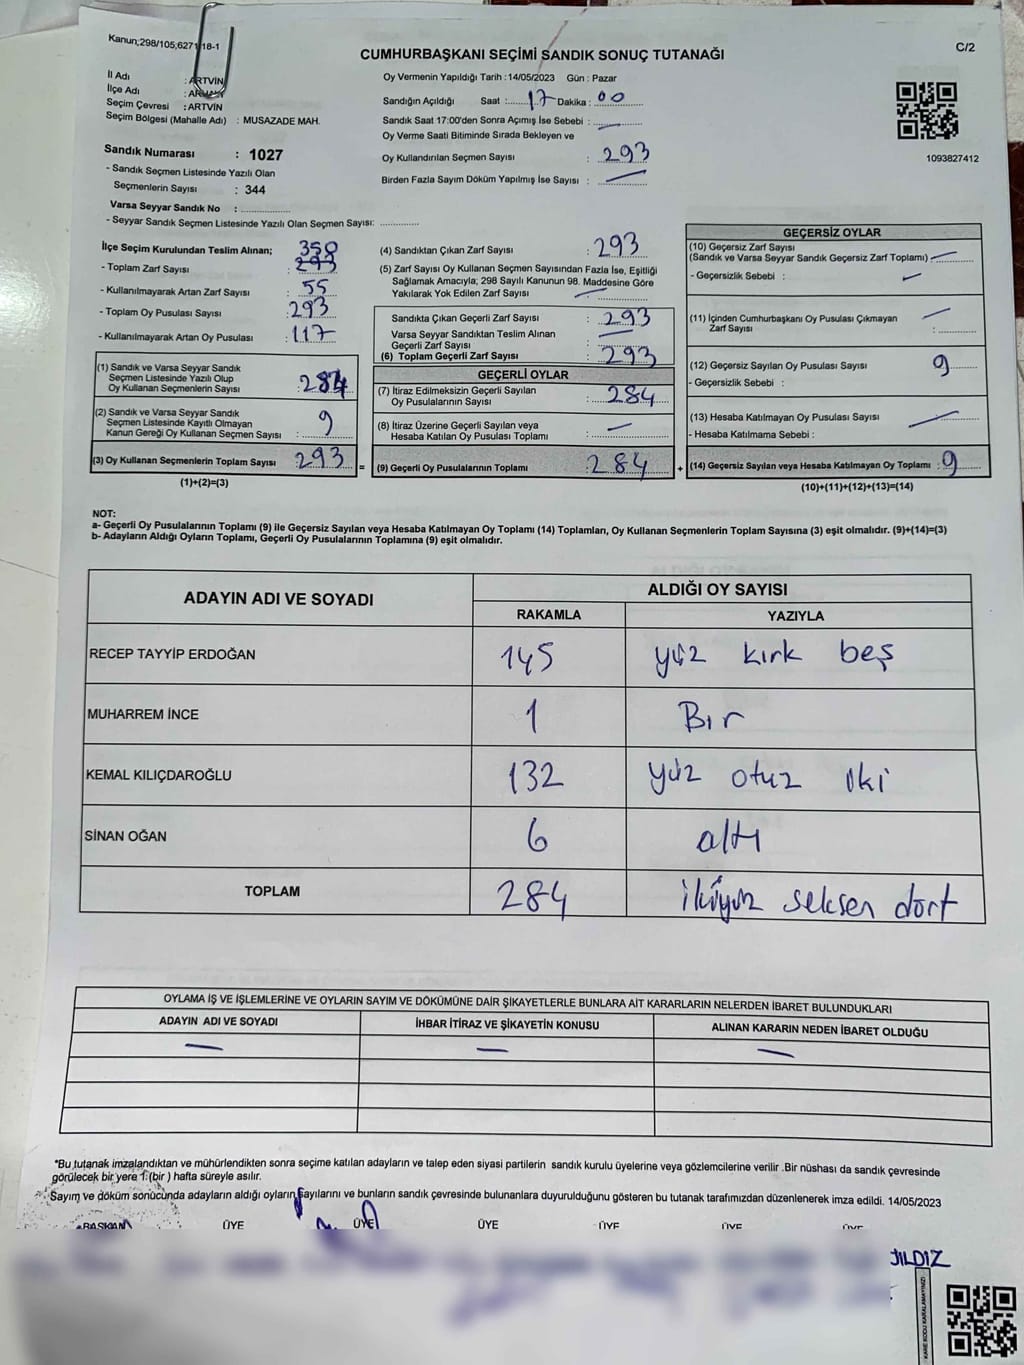 Kanun;298/105,627118-1
CUMHURBAŞKANI SEÇİMİ SANDIK SONUÇ TUTANAĞI
C/2
İl Adı : ARTVİN
İlçe Adı
Seçim Çevresi : ARTVİN
Seçim Bölgesi (Mahalle Adı) : MUSAZADE MAH.
Oy Vermenin Yapıldığı Tarih : 14/05/2023 Gün : Pazar
Sandığın Açıldığı Saat : 17 Dakika : 00
Sandık Saat 17:00'den Sonra Açımış İse Sebebi : —
Oy Verme Saati Bitiminde Sırada Bekleyen ve
Oy Kullandırılan Seçmen Sayısı : 293
Birden Fazla Sayım Döküm Yapılmış İse Sayısı : —
1093827412
Sandık Numarası : 1027
- Sandık Seçmen Listesinde Yazılı Olan
Seçmenlerin Sayısı : 344
Varsa Seyyar Sandık No :
- Seyyar Sandık Seçmen Listesinde Yazılı Olan Seçmen Sayısı:
İlçe Seçim Kurulundan Teslim Alınan;
- Toplam Zarf Sayısı : 350 293
- Kullanılmayarak Artan Zarf Sayısı : 55
- Toplam Oy Pusulası Sayısı : 293
- Kullanılmayarak Artan Oy Pusulası : 117
(1) Sandık ve Varsa Seyyar Sandık
Seçmen Listesinde Yazılı Olup
Oy Kullanan Seçmenlerin Sayısı : 284
(2) Sandık ve Varsa Seyyar Sandık
Seçmen Listesinde Kayıtlı Olmayan
Kanun Gereği Oy Kullanan Seçmen Sayısı : 9
(3) Oy Kullanan Seçmenlerin Toplam Sayısı 293 =
(1)+(2)=(3)
(4) Sandıktan Çıkan Zarf Sayısı : 293
(5) Zarf Sayısı Oy Kullanan Seçmen Sayısından Fazla İse, Eşitliği
Sağlamak Amacıyla; 298 Sayılı Kanunun 98. Maddesine Göre
Yakılarak Yok Edilen Zarf Sayısı : —
Sandıkta Çıkan Geçerli Zarf Sayısı : 293
Varsa Seyyar Sandıktan Teslim Alınan
Geçerli Zarf Sayısı : —
(6) Toplam Geçerli Zarf Sayısı : 293
GEÇERLİ OYLAR
(7) İtiraz Edilmeksizin Geçerli Sayılan
Oy Pusulalarının Sayısı : 284
(8) İtiraz Üzerine Geçerli Sayılan veya
Hesaba Katılan Oy Pusulası Toplamı : —
(9) Geçerli Oy Pusulalarının Toplamı : 284 +
GEÇERSİZ OYLAR
(10) Geçersiz Zarf Sayısı
(Sandık ve Varsa Seyyar Sandık Geçersiz Zarf Toplamı) —
- Geçersizlik Sebebi : —
(11) İçinden Cumhurbaşkanı Oy Pusulası Çıkmayan
Zarf Sayısı : —
(12) Geçersiz Sayılan Oy Pusulası Sayısı : 9
- Geçersizlik Sebebi :
(13) Hesaba Katılmayan Oy Pusulası Sayısı : —
- Hesaba Katılmama Sebebi :
(14) Geçersiz Sayılan veya Hesaba Katılmayan Oy Toplamı : 9
(10)+(11)+(12)+(13)=(14)
NOT:
a- Geçerli Oy Pusulalarının Toplamı (9) ile Geçersiz Sayılan veya Hesaba Katılmayan Oy Toplamı (14) Toplamları, Oy Kullanan Seçmenlerin Toplam Sayısına (3) eşit olmalıdır. (9)+(14)=(3)
b- Adayların Aldığı Oyların Toplamı, Geçerli Oy Pusulalarının Toplamına (9) eşit olmalıdır.
ADAYIN ADI VE SOYADI ALDIĞI OY SAYISI
RAKAMLA YAZIYLA
RECEP TAYYİP ERDOĞAN 145 yüz kırk beş
MUHARREM İNCE 1 Bir
KEMAL KILIÇDAROĞLU 132 yüz otuz iki
SİNAN OĞAN 6 altı
TOPLAM 284 ikiyüz seksen dört
OYLAMA İŞ VE İŞLEMLERİNE VE OYLARIN SAYIM VE DÖKÜMÜNE DAİR ŞİKAYETLERLE BUNLARA AİT KARARLARIN NELERDEN İBARET BULUNDUKLARI
ADAYIN ADI VE SOYADI İHBAR İTİRAZ VE ŞİKAYETİN KONUSU ALINAN KARARIN NEDEN İBARET OLDUĞU
— — —
*Bu tutanak imzalandıktan ve mühürlendikten sonra seçime katılan adayların ve talep eden siyasi partilerin sandık kurulu üyelerine veya gözlemcilerine verilir .Bir nüshası da sandık çevresinde
görülecek bir yere 1.(bir ) hafta süreyle asılır.
Sayım ve döküm sonucunda adayların aldığı oyların sayılarını ve bunların sandık çevresinde bulunanlara duyurulduğunu gösteren bu tutanak tarafımızdan düzenlenerek imza edildi. 14/05/2023
BAŞKAN ÜYE ÜYE ÜYE ÜYE ÜYE ÜYE
YILDIZ
KARE KODU KARALAMAYINIZ!